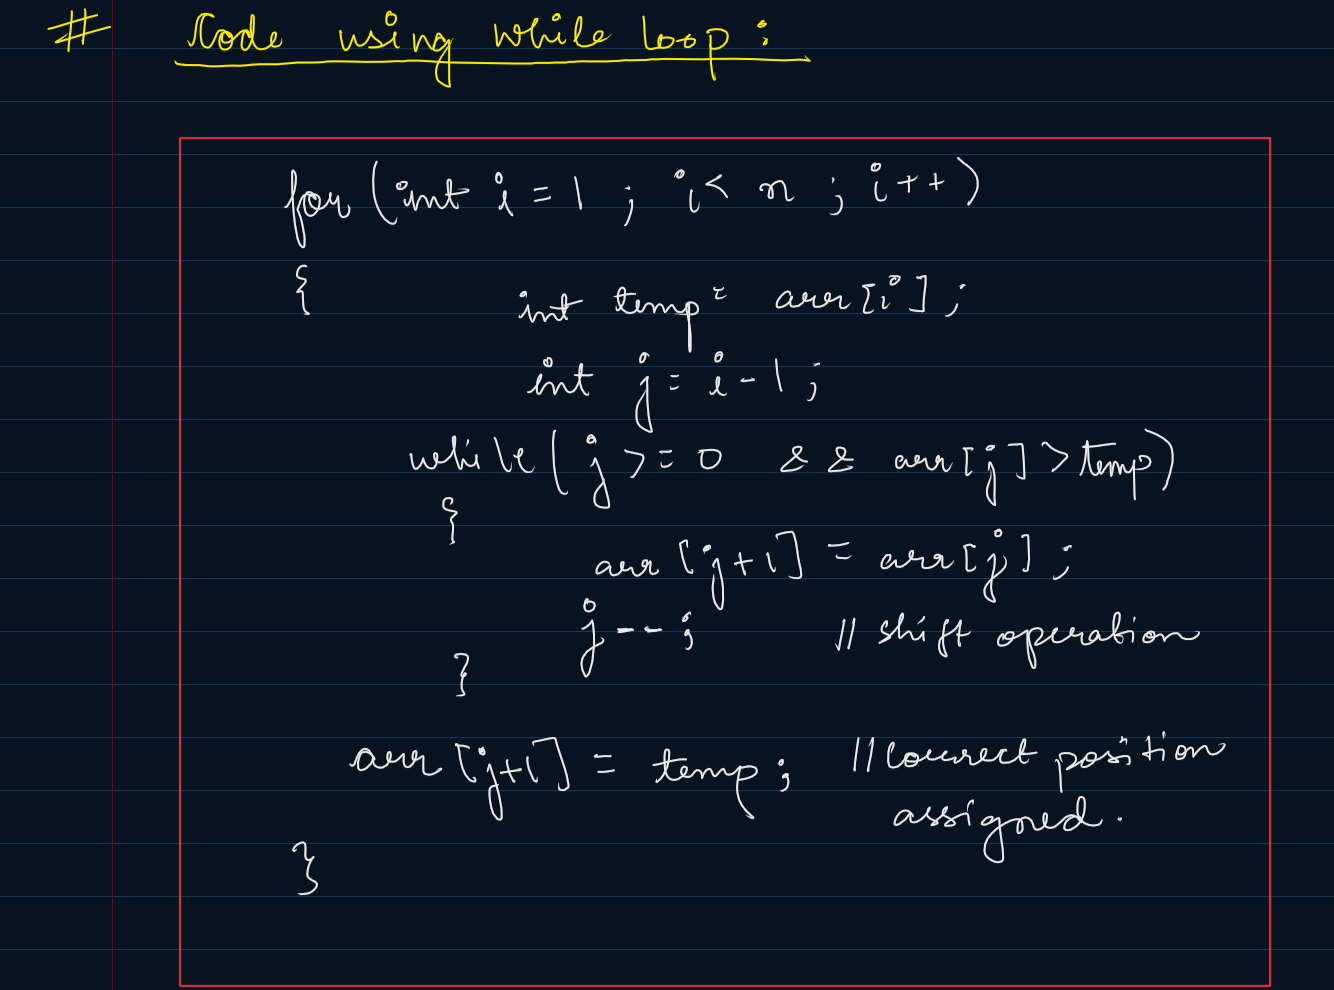 # Code using while loop :
for (int i = 1 ; i < n ; i++)
{
int temp = arr[i] ;
int j = i - 1 ;
while ( j >= 0 && arr[j] > temp)
{
arr [j+1] = arr[j] ;
j-- ; // shift operation
}
arr [j+1] = temp ; // correct position
assigned.
}